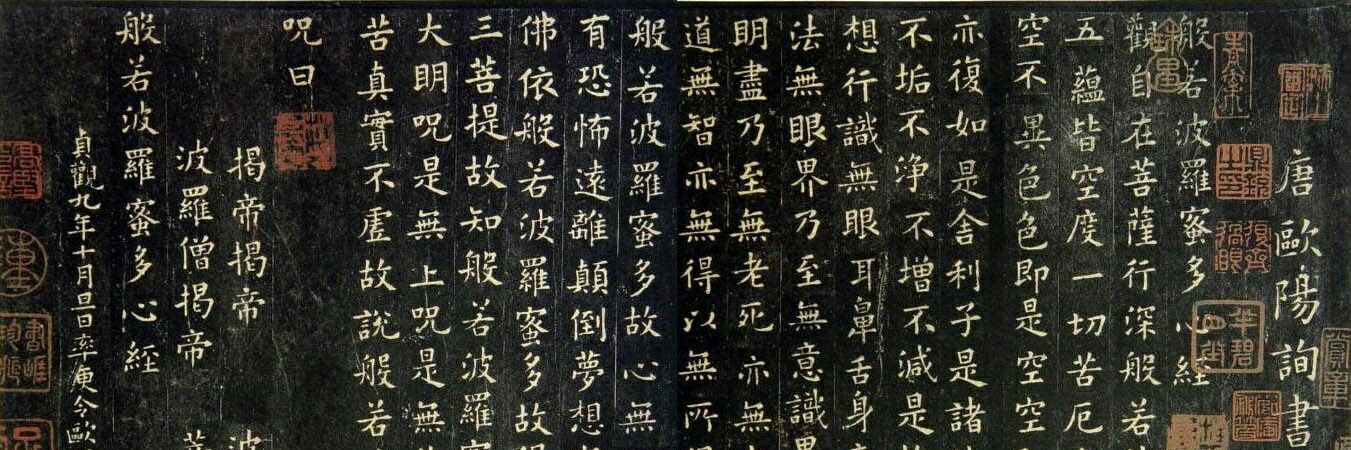 唐歐陽詢書
般若波羅蜜多心經
觀自在菩薩行深般若
五蘊皆空度一切苦厄
空不異色色即是空空
亦復如是舍利子是諸
不垢不淨不增不減是
想行識無眼耳鼻舌身
法無眼界乃至無意識
明盡乃至無老死亦無
道無智亦無得以無所
般若波羅蜜多故心無
有恐怖遠離顛倒夢想
佛依般若波羅蜜多故
三菩提故知般若波羅
大明咒是無上咒是無
苦真實不虛故說般若
咒曰
揭帝揭帝 波
波羅僧揭帝
般若波羅蜜多心經
貞觀九年十月旦日率更令歐